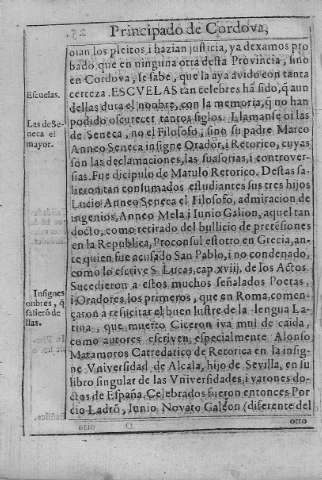 Principado de Cordova,
oian los pleitos i hazian justicia, ya dexamos pro
bado, que en ninguna otra desta Provincia, sino
en Cordova, se sabe, que la aya avido con tanta
Escuelas.
certeza. ESCVELAS tan celebres ha sido, q̃ aun
dellas dura el nonbre, con la memoria, q̃ no han
Las de Se-
neca el
mayor.
podido oscurecer tantos siglos. Llamanse oi las
de Seneca, no el Filosofo, sino su padre Marco
Anneo Seneca insigne Orador, i Retorico, cuyas
son las declamaciones, las suasorias, i controver-
sias. Fue dicipulo de Marulo Retorico. Destas sa-
lieron tan consumados estudiantes sus tres hijos
Lucio Anneo Seneca el Filosofo, admiracion de
ingenios, Anneo Mela, i Iunio Galion, aquel tan
docto, como retirado del bullicio de pretẽsiones
en la Republica, Proconsul estotro en Grecia, an-
te quien fue acusado San Pablo, i no condenado,
como lo escrive S. Lucas, cap. xviij. de los Actos.
Insignes
onbres, q̃
saliero de
llas.
Sucedieron a estos muchos señalados Poetas,
i Oradores, los primeros, que en Roma, comen-
çaron a resucitar el buen lustre de la lengua La-
tina, que muerto Ciceron iva mui de caida,
como autores escriven, especialmente Alonso
Matamoros Catredatico de Retorica en la insig-
ne Vniversidad de Alcala, hijo de Sevilla, en su
libro singular de las Vniversidades, i varones do-
ctos de España. Celebrados fueron entonces Por
cio Ladrõ, Iunio Novato Galion (diferente del
otro